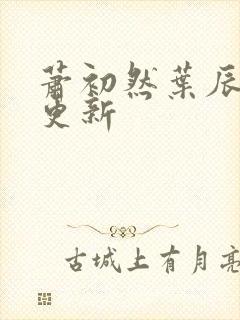 萧初然葉辰
更新
古城上有月亮